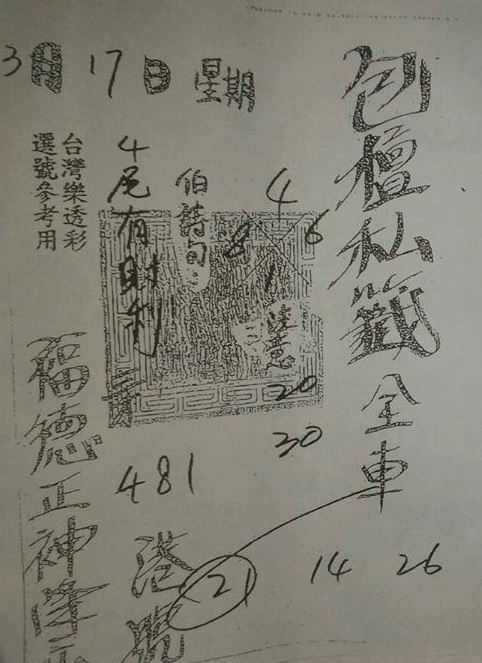 3月17日星期
包壇私籤全車
4
8 6
1
注意
20
30
伯詩句:
4尾有財利
台灣樂透彩
選號參考用
福德正神
481
港號
21 14 26